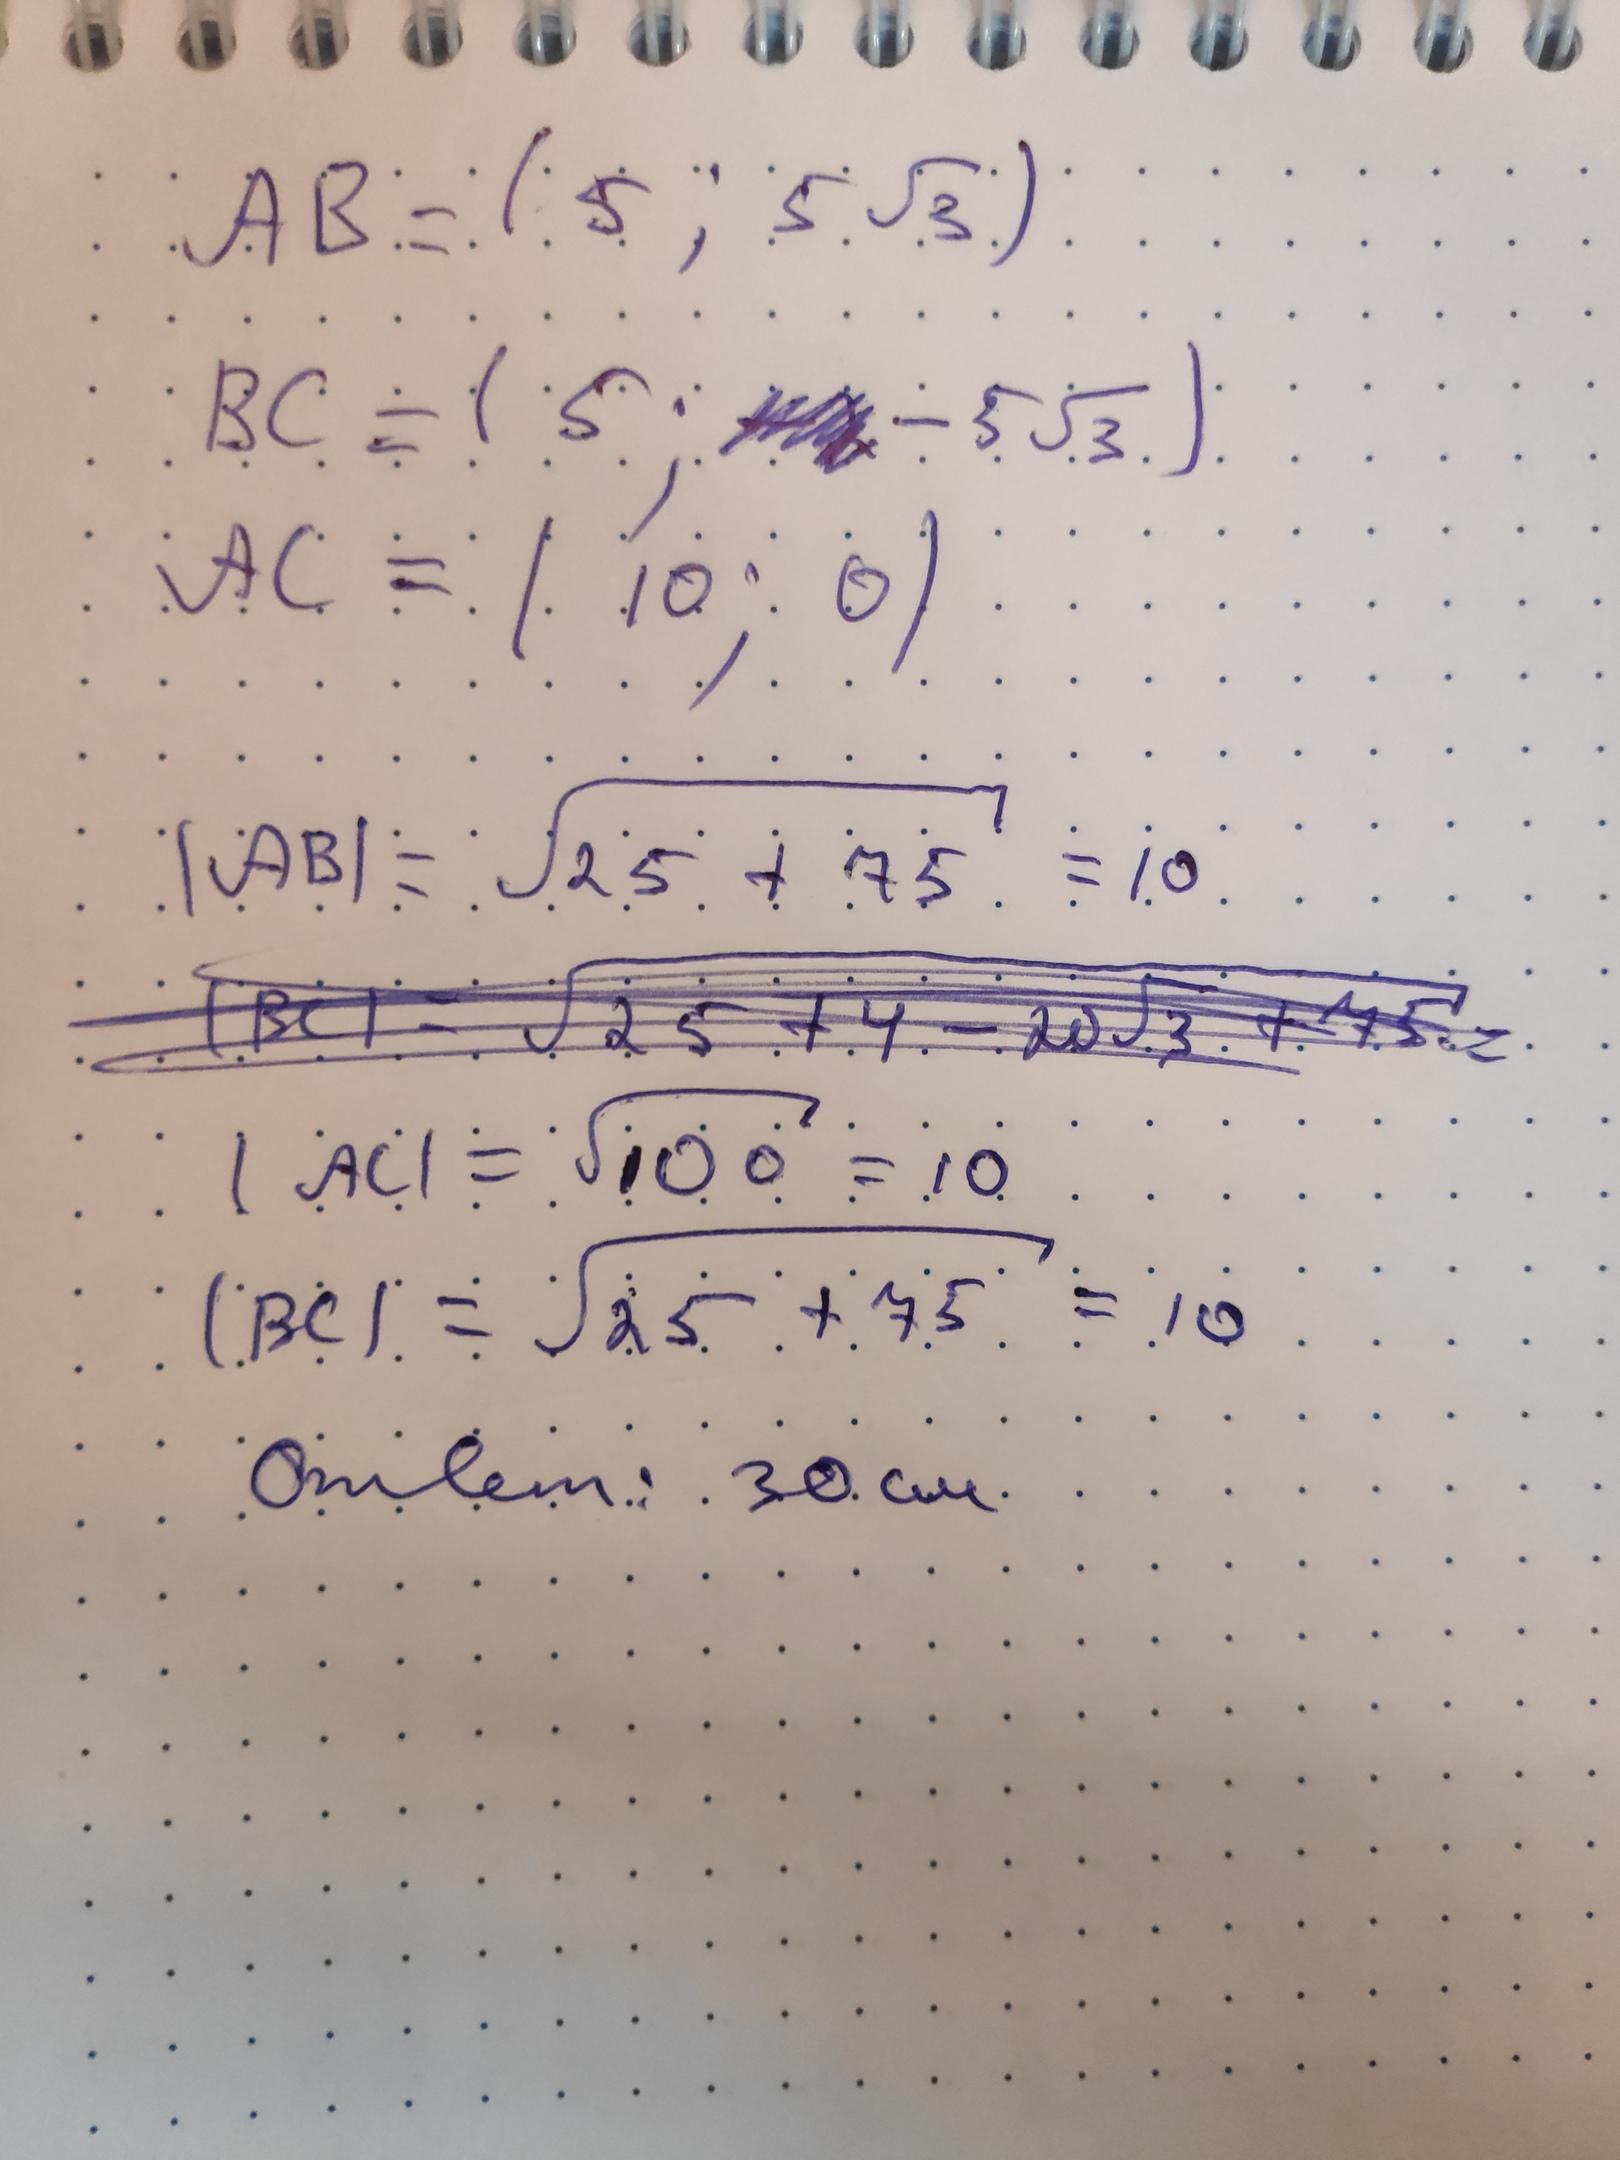 AB = (5; 5√3)
BC = (5; -5√3)
AC = (10; 0)
|AB| = √25 + 75 = 10
|BC| = √25 + 4 - 20√3 + 75 =
|AC| = √100 = 10
|BC| = √25 + 75 = 10
Ответ: 30 см.